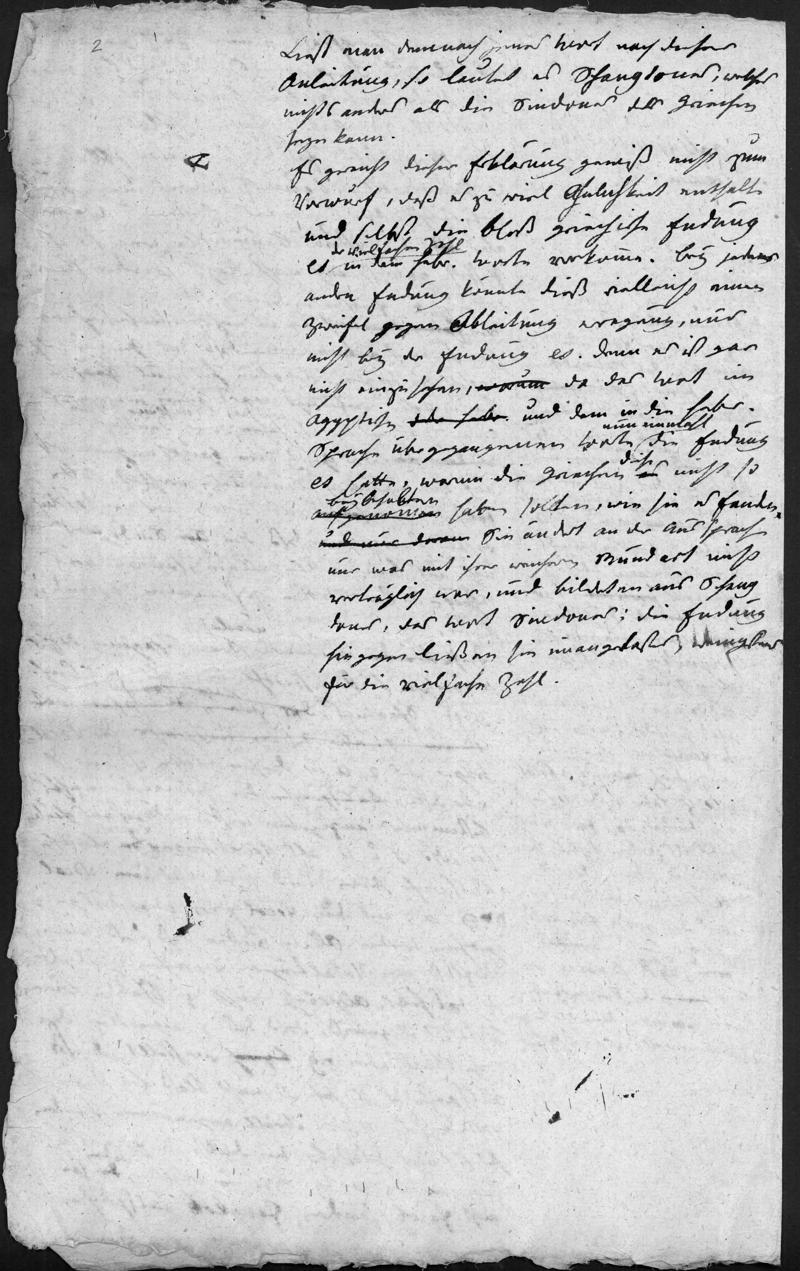 2
Ließt man demnach jenes Wort nach dieser
Anleitung, so lautet es Schangdones, welches
nichts anders als die Sindones der Griechen
seyn kann.
Es gereicht dieser Erklärung gewiß nicht zum
Vorwurf, daß es zu viel Ähnlichkeit enthalte
und selbst die bloß griechische Endung
der vielfachen Zahl
es in dem hebr. Worte vorkomme. Bey jeder
andern Endung könnte dieß vielleicht einen
Zweifel gegen Ableitung erregen, nur
nicht bey der Endung es. denn es ist gar
nicht einzusehen, warum da das Wort im
Ägyptischen oder hebr. und dem in die hebr.
nun einmahl
Sprache übergegangenen Worte die Endung
es hatte, warum die Griechen diese es nicht so
beybehalten
aufgenommen haben sollten, wie sie es fanden.
und nur daran Sie ändert an der Aussprache
nur was mit ihrer weichern Mundart nicht
verträglich war, und bildeten aus Schang
dones, das Wort Sindones; die Endung
hingegen ließen sie unangetastet, wenigstens
für die vielfache Zahl.